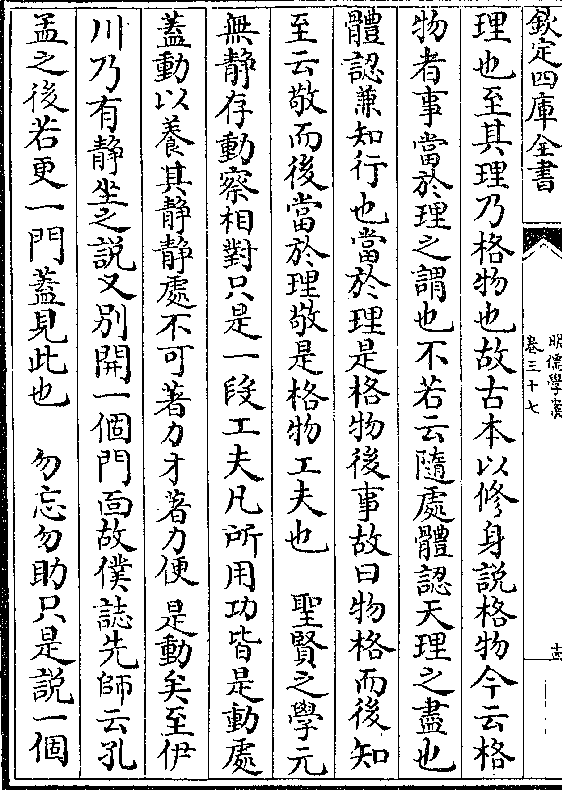 欽定四庫全書
明儒學案
卷三十七
理也至其理乃格物也故古本以修身説格物今云格
物者事當於理之謂也不若云隨處體認天理之盡也
體認兼知行也當於理是格物後事故曰物格而後知
至云敬而後當於理敬是格物工夫也 聖賢之學元
無静存動察相對只是一段工夫凡所用功皆是動處
蓋動以養其静静處不可著力才著力便是動矣至伊
川乃有静坐之説又别開一個門面故僕誌先師云孔
孟之後若更一門蓋見此也 勿忘勿助只是説一個